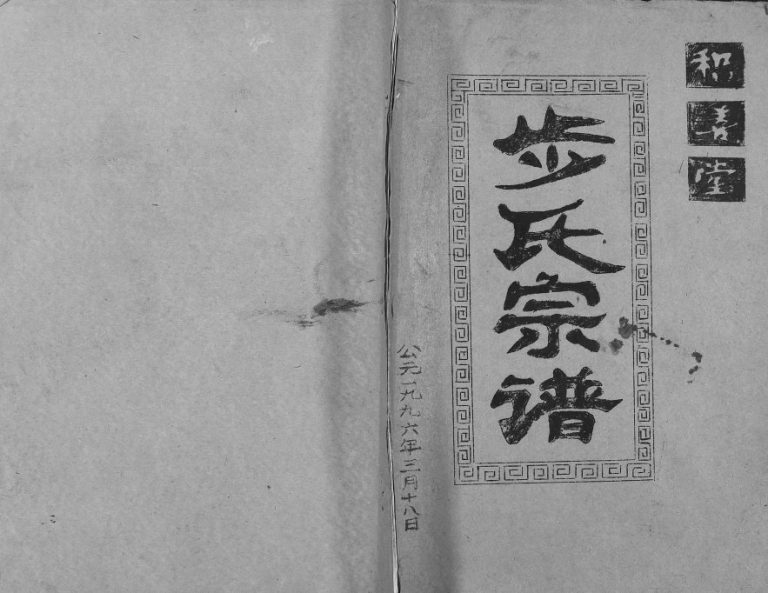 和善堂
步氏宗谱
公元一九九六年三月十八日